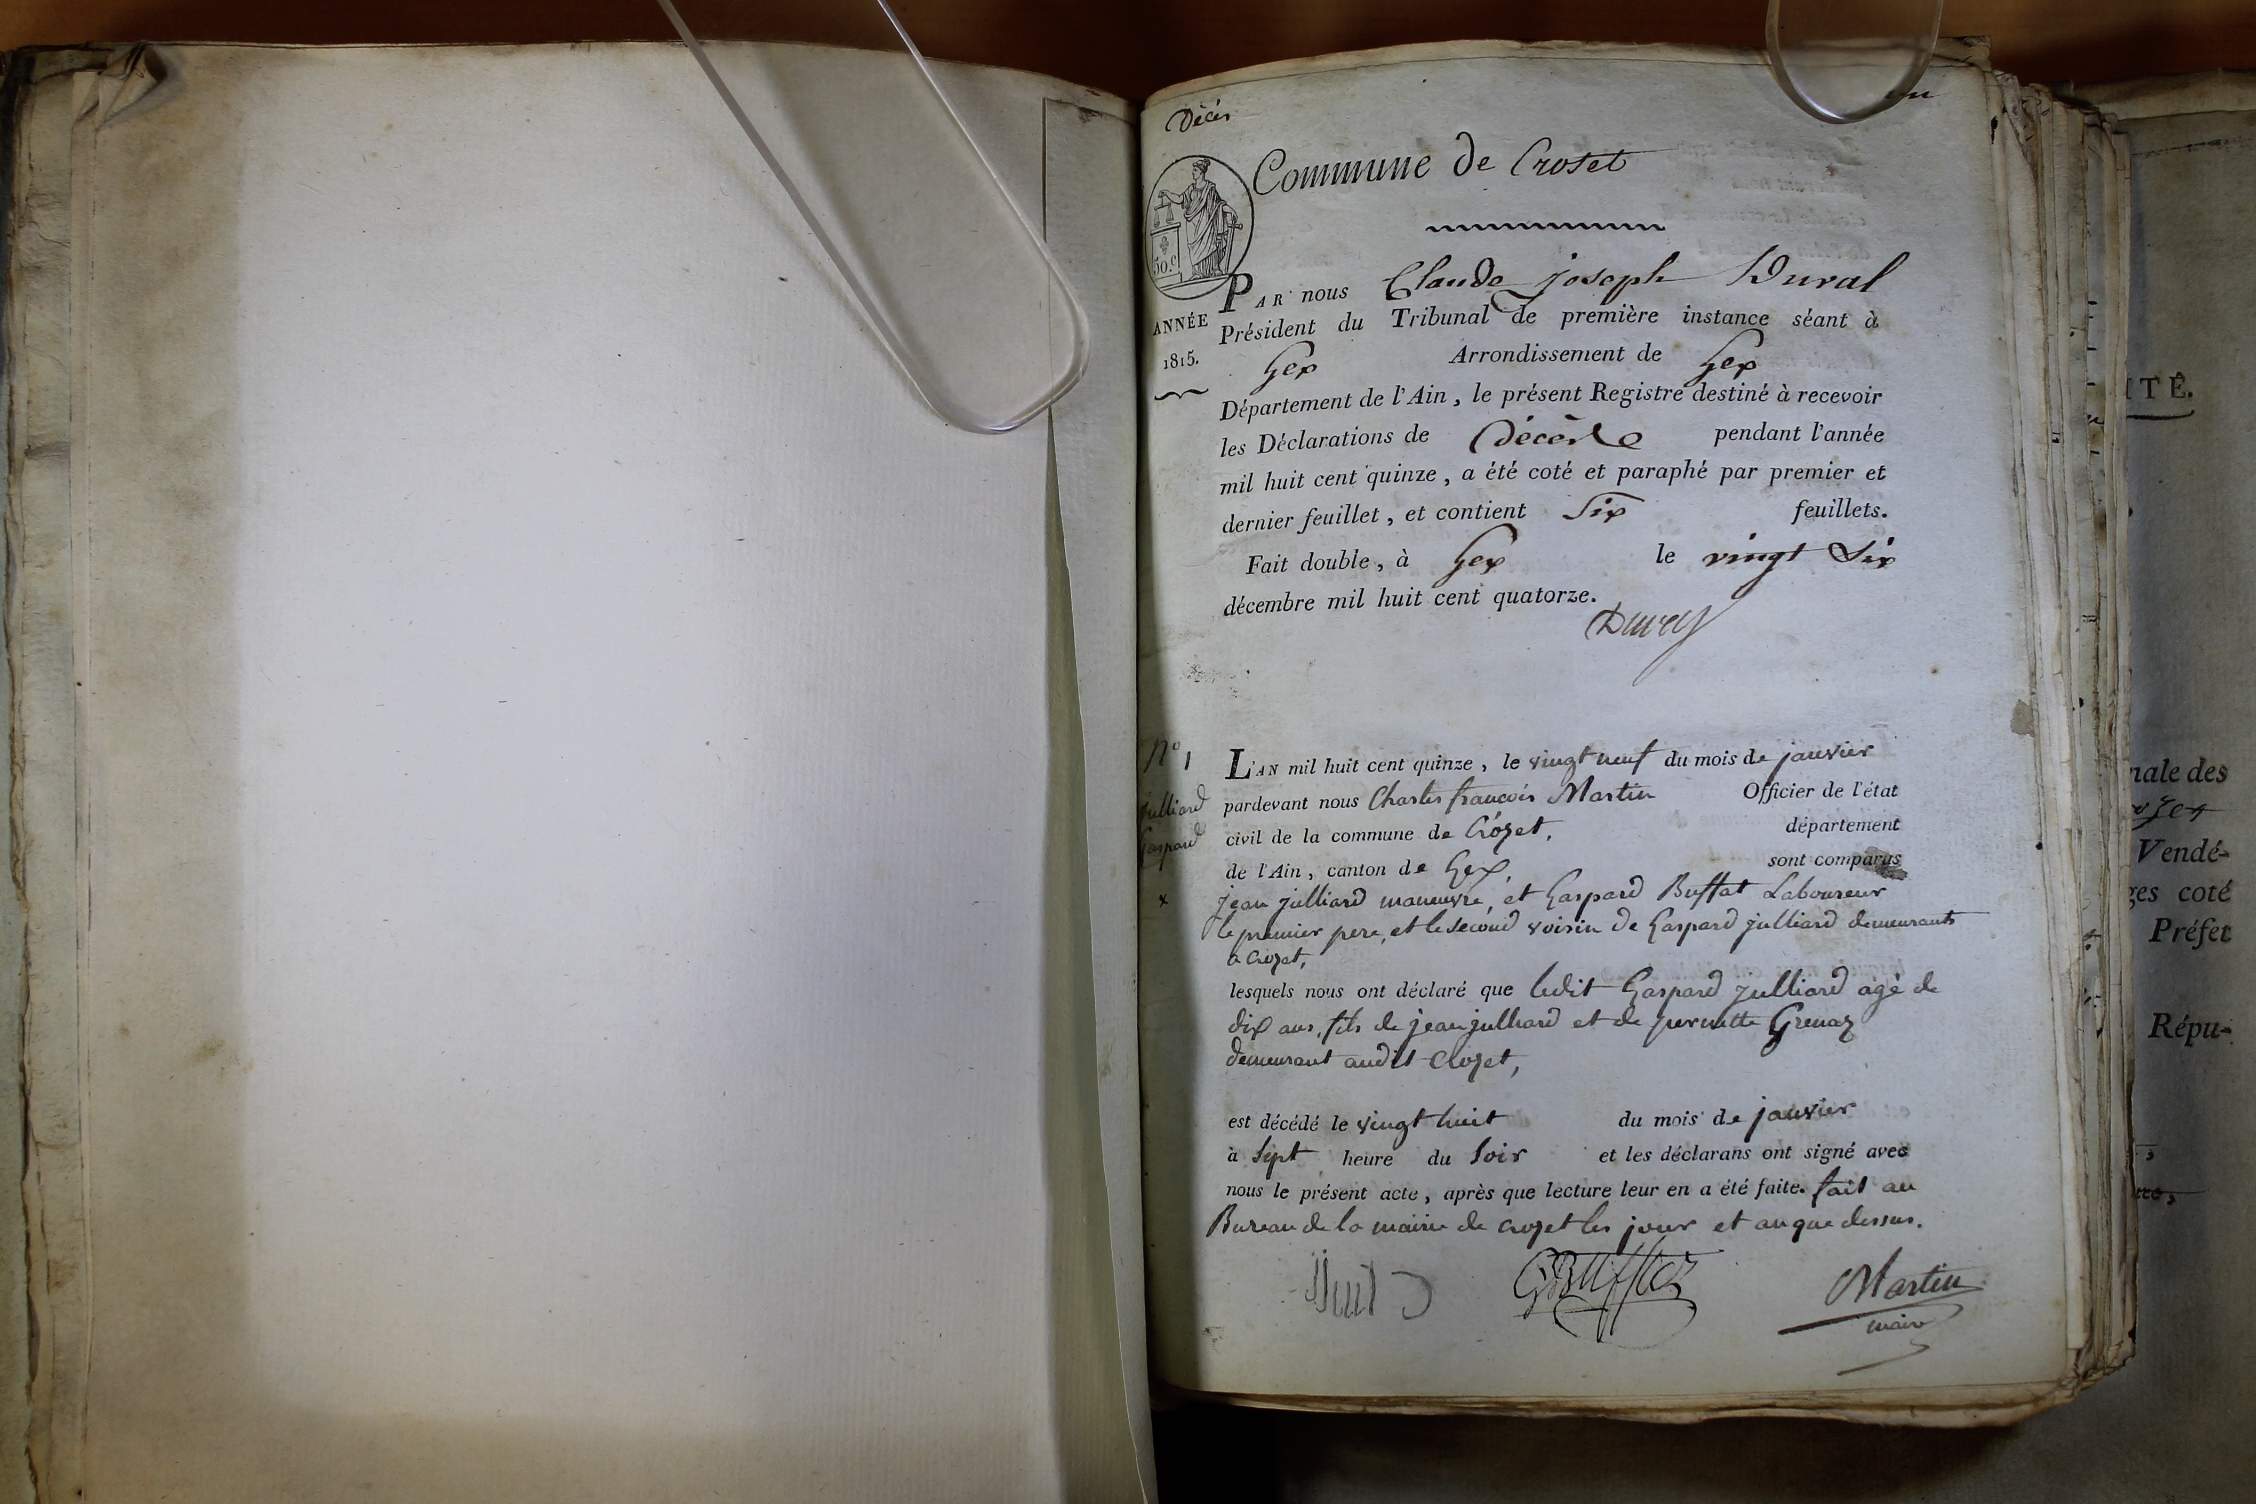 Décès
un
Commune de Croset
50.c
PAR nous Claude joseph Duval
ANNÉE
1815.
Président du Tribunal de première instance séant à
Gex Arrondissement de Gex
Département de l'Ain, le présent Registre destiné à recevoir
les Déclarations de Décès pendant l'année
mil huit cent quinze, a été coté et paraphé par premier et
dernier feuillet, et contient Six feuillets.
Fait double, à Gex le vingt Six
décembre mil huit cent quatorze.
Duval
N° 1
Julliard
Gaspard
x
L'AN mil huit cent quinze, le vingt neuf du mois de janvier
pardevant nous Charles françois Martin Officier de l'état
civil de la commune de Crozet, département
de l'Ain, canton de Gex, sont comparus
jean julliard maneuvre, et Gaspard Buffat Laboureur
le premier pere, et le second voisin de Gaspard julliard demeurants
a crozet,
lesquels nous ont déclaré que ledit Gaspard julliard agé de
dix ans, fils de jean julliard et de pernette Grenaz
demeurant audit Crozet,
est décédé le vingt huit du mois de janvier
à Sept heure du Soir et les déclarans ont signé avec
nous le présent acte, après que lecture leur en a été faite. fait au
Bureau de la mairie de crozet les jour et an que dessus.
Martin
maire
ITÉ.
nale des
Vendé-
ges coté
Préfet
Répu-